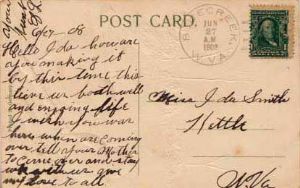 POST CARD.
JUN
27
A.M.
1908
W. VA.
6/27 - 08
Hello Ida how are
you making it
by this time this
leaves us both well
and enjoying life
I wish you was
here when are coming
over, tell your Mother
to come over and stay
with us give
my love to all
Miss Ida Smith
Kettle
W. Va